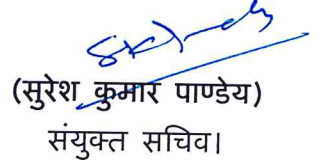 (सुरेश कुमार पाण्डेय)
संयुक्त सचिव।